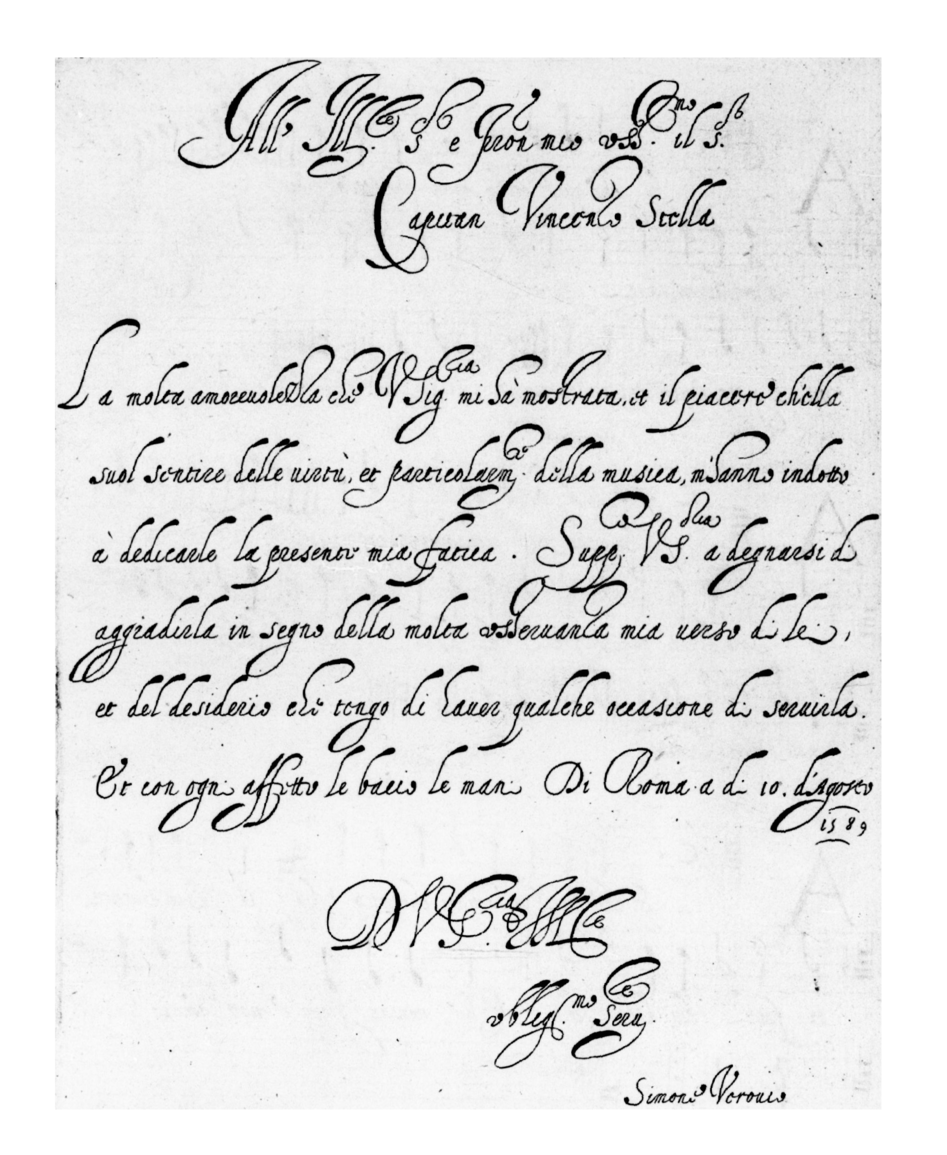 All' Ill.re s.or e P̃ron mio oss.mo il s.or
Capitan Vincenzo Stella
La molta amoreuolezza che V Sig.ria mi hà mostrata, et il piacere ch'ella
suol sentire delle uirtù, et particolarm.te della musica, m'hanno indotto
à dedicarle la presente mia fatica. Supp.co V S.ria a degnarsi di
aggradirla in segno della molta osseruanza mia uerso di lei,
et del desiderio che tengo di hauer qualche occasione di seruirla.
Et con ogni affetto le bacio le mani. Di Roma a di 10. d'Agosto
1589
D V S.ria Ill.re
obleg.mo Seru.re
Simone Verouio